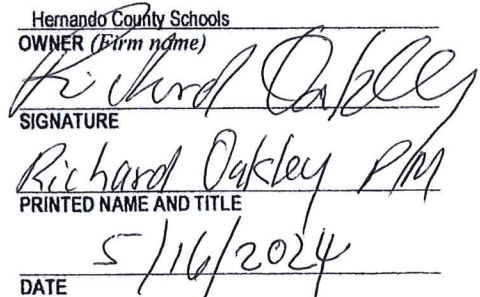 Hernando County Schools
OWNER (Firm name)
Richard Oakley
SIGNATURE
Richard Oakley PM
PRINTED NAME AND TITLE
5/16/2024
DATE